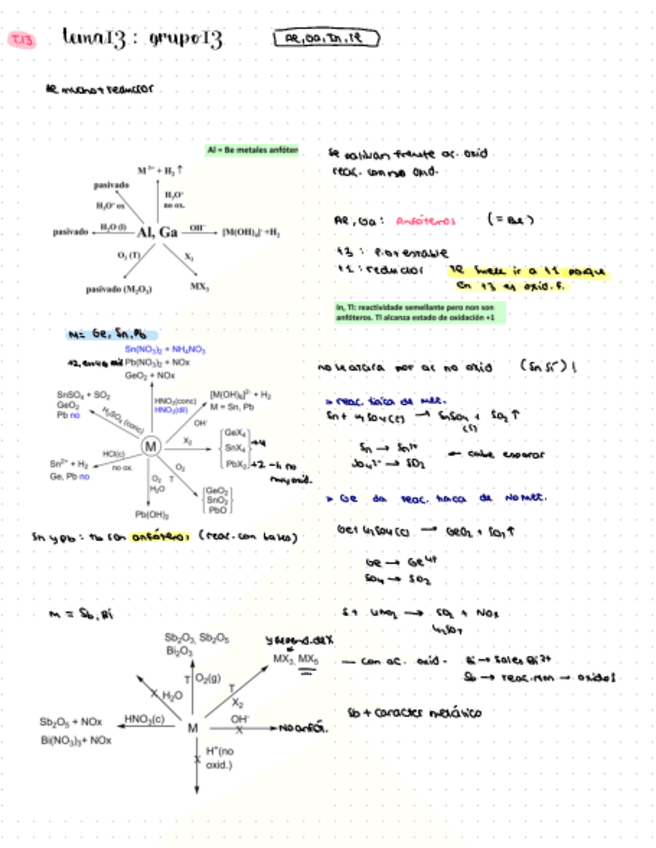 T.13 tema13 : grupo13 Al, Ga, In, Tl
Al mucho + reductor
Al = Be metales anfóter
M³⁺ + H₂ ↑
pasivado
H₃O⁺ ox
H₃O⁺
no ox.
pasivado H₂O (l) Al, Ga OH⁻ [M(OH)₄]⁻ + H₂
O₂ (T) X₂
pasivado (M₂O₃) MX₃
Se pasivan frente ac. oxid
reac. con no oxid.
Al, Ga: Anfóteros (= Be)
+3 : + estable
+1 : reductor Tl suele ir a +1 porque
en +3 es oxid. f.
In, Tl: reactividade semellante pero non son
anfóteros. Tl alcanza estado de oxidación +1
M= Ge, Sn, Pb
Sn(NO₃)₂ + NH₄NO₃
Pb(NO₃)₂ + NOx
GeO₂ + NOx
SnSO₄ + SO₂
GeO₂
Pb no
H₂SO₄ (conc)
HNO₃(conc)
HNO₃(dil)
[M(OH)₆]²⁻ + H₂
M = Sn, Pb
OH⁻
M
X₂
GeX₄
SnX₄ +4
PbX₂ +2 → no
muy oxid.
HCl(c)
no ox.
Sn²⁺ + H₂
Ge, Pb no
O₂
H₂O
O₂ T
GeO₂
SnO₂
PbO
Pb(OH)₂
Sn y Pb: tb son anfóteros (reac. con bases)
por ac no oxid (Sn sí)
» reac. típica de met.
Sn + H₂SO₄(c) → SnSO₄ + SO₂ ↑
(s)
Sn → Sn²⁺
SO₄²⁻ → SO₂ ← cabe esperar
» Ge da reac. típica de No met.
Ge + H₂SO₄(c) → GeO₂ + SO₂ ↑
Ge → Ge⁴⁺
SO₄ → SO₂
S + HNO₃ → SO₂ + NOx
H₂SO₄
M = Sb, Bi
Sb₂O₃, Sb₂O₅
Bi₂O₃
y depend. de X
MX₃, MX₅
T O₂(g)
T
X₂
H₂O
HNO₃(c)
Sb₂O₅ + NOx
Bi(NO₃)₃ + NOx
M
OH⁻
No anfó.
H⁺(no
oxid.)
— con ac. oxid. Bi → sales Bi³⁺
Sb → reac. NM → oxidos
Sb + caracter metálico